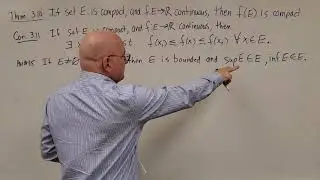 Thm 3.11 If set E is compact, and f:E→ℝ continuous, then f(E) is compact
Cor. 3.11 If set E is compact, and f:E→ℝ continuous, then
∃ f(x₁) ≤ f(x) ≤ f(x₂) ∀ x∈E.
If E≠ then E is bounded and sup E∈E, inf E∈E.